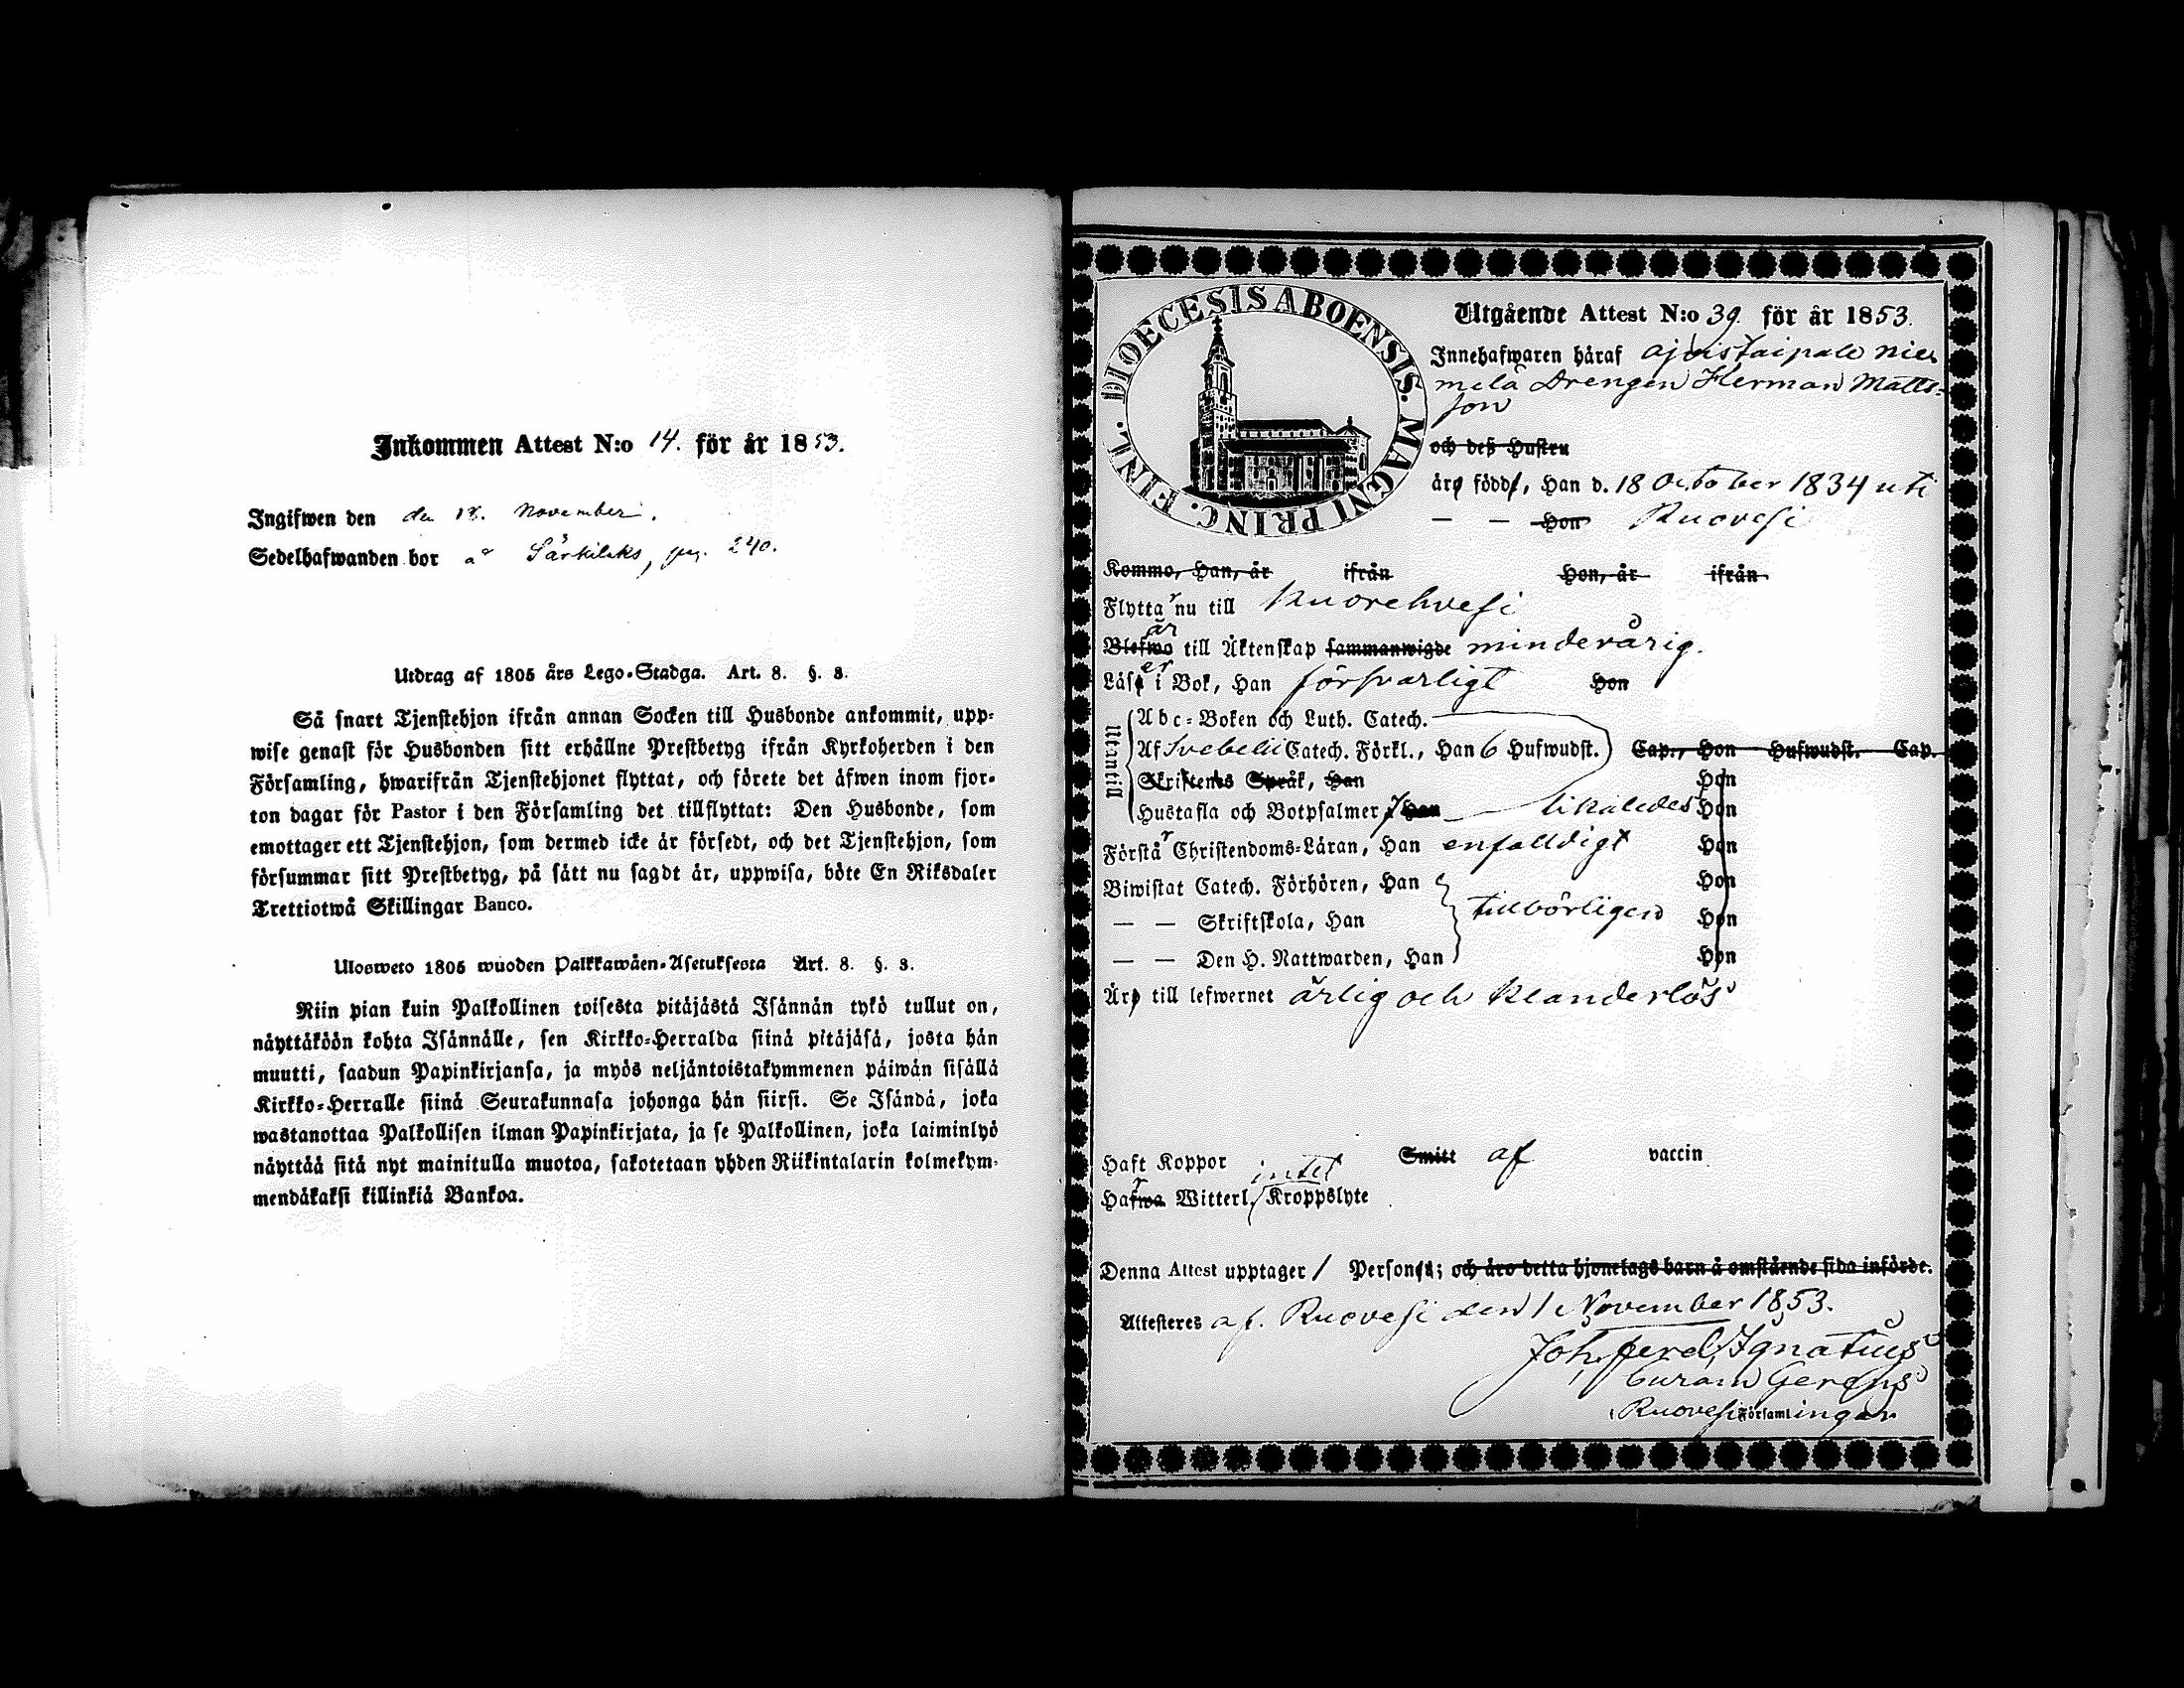 Inkommen Attest N:o 14. för år 1853.
Ingifwen den den 18. November.
Sedelhafwanden bor å Särkilaks, pag. 240.
Utdrag af 1805 års Lego-Stadga. Art. 8. §. 3.
Så snart Tjenstehjon ifrån annan Socken till Husbonde ankommit, upp-
wise genast för Husbonden sitt erhållne Prestbetyg ifrån Kyrkoherden i den
Församling, hwarifrån Tjenstehjonet flyttat, och förete det äfwen inom fjor-
ton dagar för Pastor i den Församling det tillflyttat: Den Husbonde, som
emottager ett Tjenstehjon, som dermed icke är försedt, och det Tjenstehjon, som
försummar sitt Prestbetyg, på sätt nu sagdt är, uppwisa, böte En Riksdaler
Trettiotwå Skillingar Banco.
Ulosweto 1805 wuoden Palkkawäen-Asetuksesta Art. 8. §. 3.
Niin pian kuin Palkollinen toisesta pitäjästä Isännän tykö tullut on,
näyttäköön kohta Isännälle, sen Kirkko-Herralda siinä pitäjäsä, josta hän
muutti, saadun Papinkirjansa, ja myös neljäntoistakymmenen päiwän sisällä
Kirkko-Herralle siinä Seurakunnasa johonga hän siirsi. Se Isändä, joka
wastanottaa Palkollisen ilman Papinkirjata, ja se Palkollinen, joka laiminlyö
näyttää sitä nyt mainitulla muotoa, sakotetaan yhden Riikintalarin kolmekym-
mendäkaksi killinkiä Bankoa.
DIOECESIS ABOENSIS. MAGNI PRINC. FINL.
Utgående Attest N:o 39 för år 1853.
Innehafwaren häraf Nie-
melä Drengen Herman Matts-
son
och deß Hustru
äro född, Han d. 18 October 1834 uti
— — Hon Ruovesi
Kommo, Han, år ifrån Hon, år ifrån
Flyttar nu till Kuorehvesi
är
Blefwo till Äktenskap sammanwigde minderårig.
Läser i Bok, Han försvarligt Hon
Utantill
Abc-Boken och Luth. Catech.
Af Svebelii Catech. Förkl., Han 6 Hufwudst. Cap., Hon Hufwudst. Cap.
Skriftenes Språk, Han Hon
Hustafla och Botpsalmer 7 Han likaledes Hon
Förstår Christendoms-Läran, Han enfalldigt Hon
Biwistat Catech. Förhören, Han Hon
— — Skriftskola, Han tillbörligen Hon
— — Den H. Nattwarden, Han Hon
Äro till lefwernet ärlig och klanderlös
Haft Koppor Smitt af vaccin
intet
Hafwa Witterl. Kroppslyte
Denna Attest upptager 1 Person; och äro detta hjonelags barn å omstående sida införde.
Attesteres af. Ruovesi den 1 November 1853.
Joh. Ferd. Ignatius
Curam Gerens
i Ruovesi Församlingar